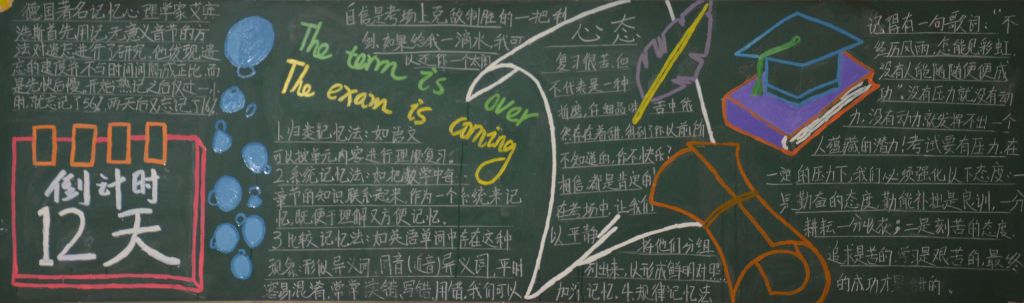 德国著名记忆心理学家艾宾
浩斯首先用记无意义音节的方
法对遗忘进行了研究,他发现遗
忘的速度并不与时间成正比,而
是先快后慢,开始熟记之后仅过一小
时,就忘记了56%,两天后又忘记了16%
倒计时
12天
自信是考场上克敌制胜的一把利
剑,如果给我一滴水,我可
以还你一个大海
The term is over
The exam is coming
1.归类记忆法:如语文
可以按单元内容进行理解复习。
2.系统记忆法:如把数学中各
章节的知识联系起来,作为一个系统来记
忆,既便于理解又方便记忆。
3.比较记忆法:如英语单词中存在这种
现象:形似异义词,同音(近音)异义词,平时
容易混淆,常常读错、写错、用错,我们可以
将他们分组
列出来,以形成鲜明对照
加深记忆.4.规律记忆法
心态
复习很苦,但
不代表是一种
难度,仔细品味,苦中依
然存在着甜,得到了你以前所
不知道的,你不快乐?
相信,都是肯定的
在考场中,让我们
以平静
记得有一句歌词:“不
经历风雨,怎能见彩虹
没有人能随随便便成
功”没有压力就没有动
力,没有动力就发挥不出一个
人蕴藏的潜力!考试要有压力,在
一定的压力下,我们必须强化以下态度:一
是勤奋的态度,勤能补拙是良训,一分
耕耘一分收获;二是刻苦的态度
追求是苦的 是艰苦的,最终
的成功才 甜的.